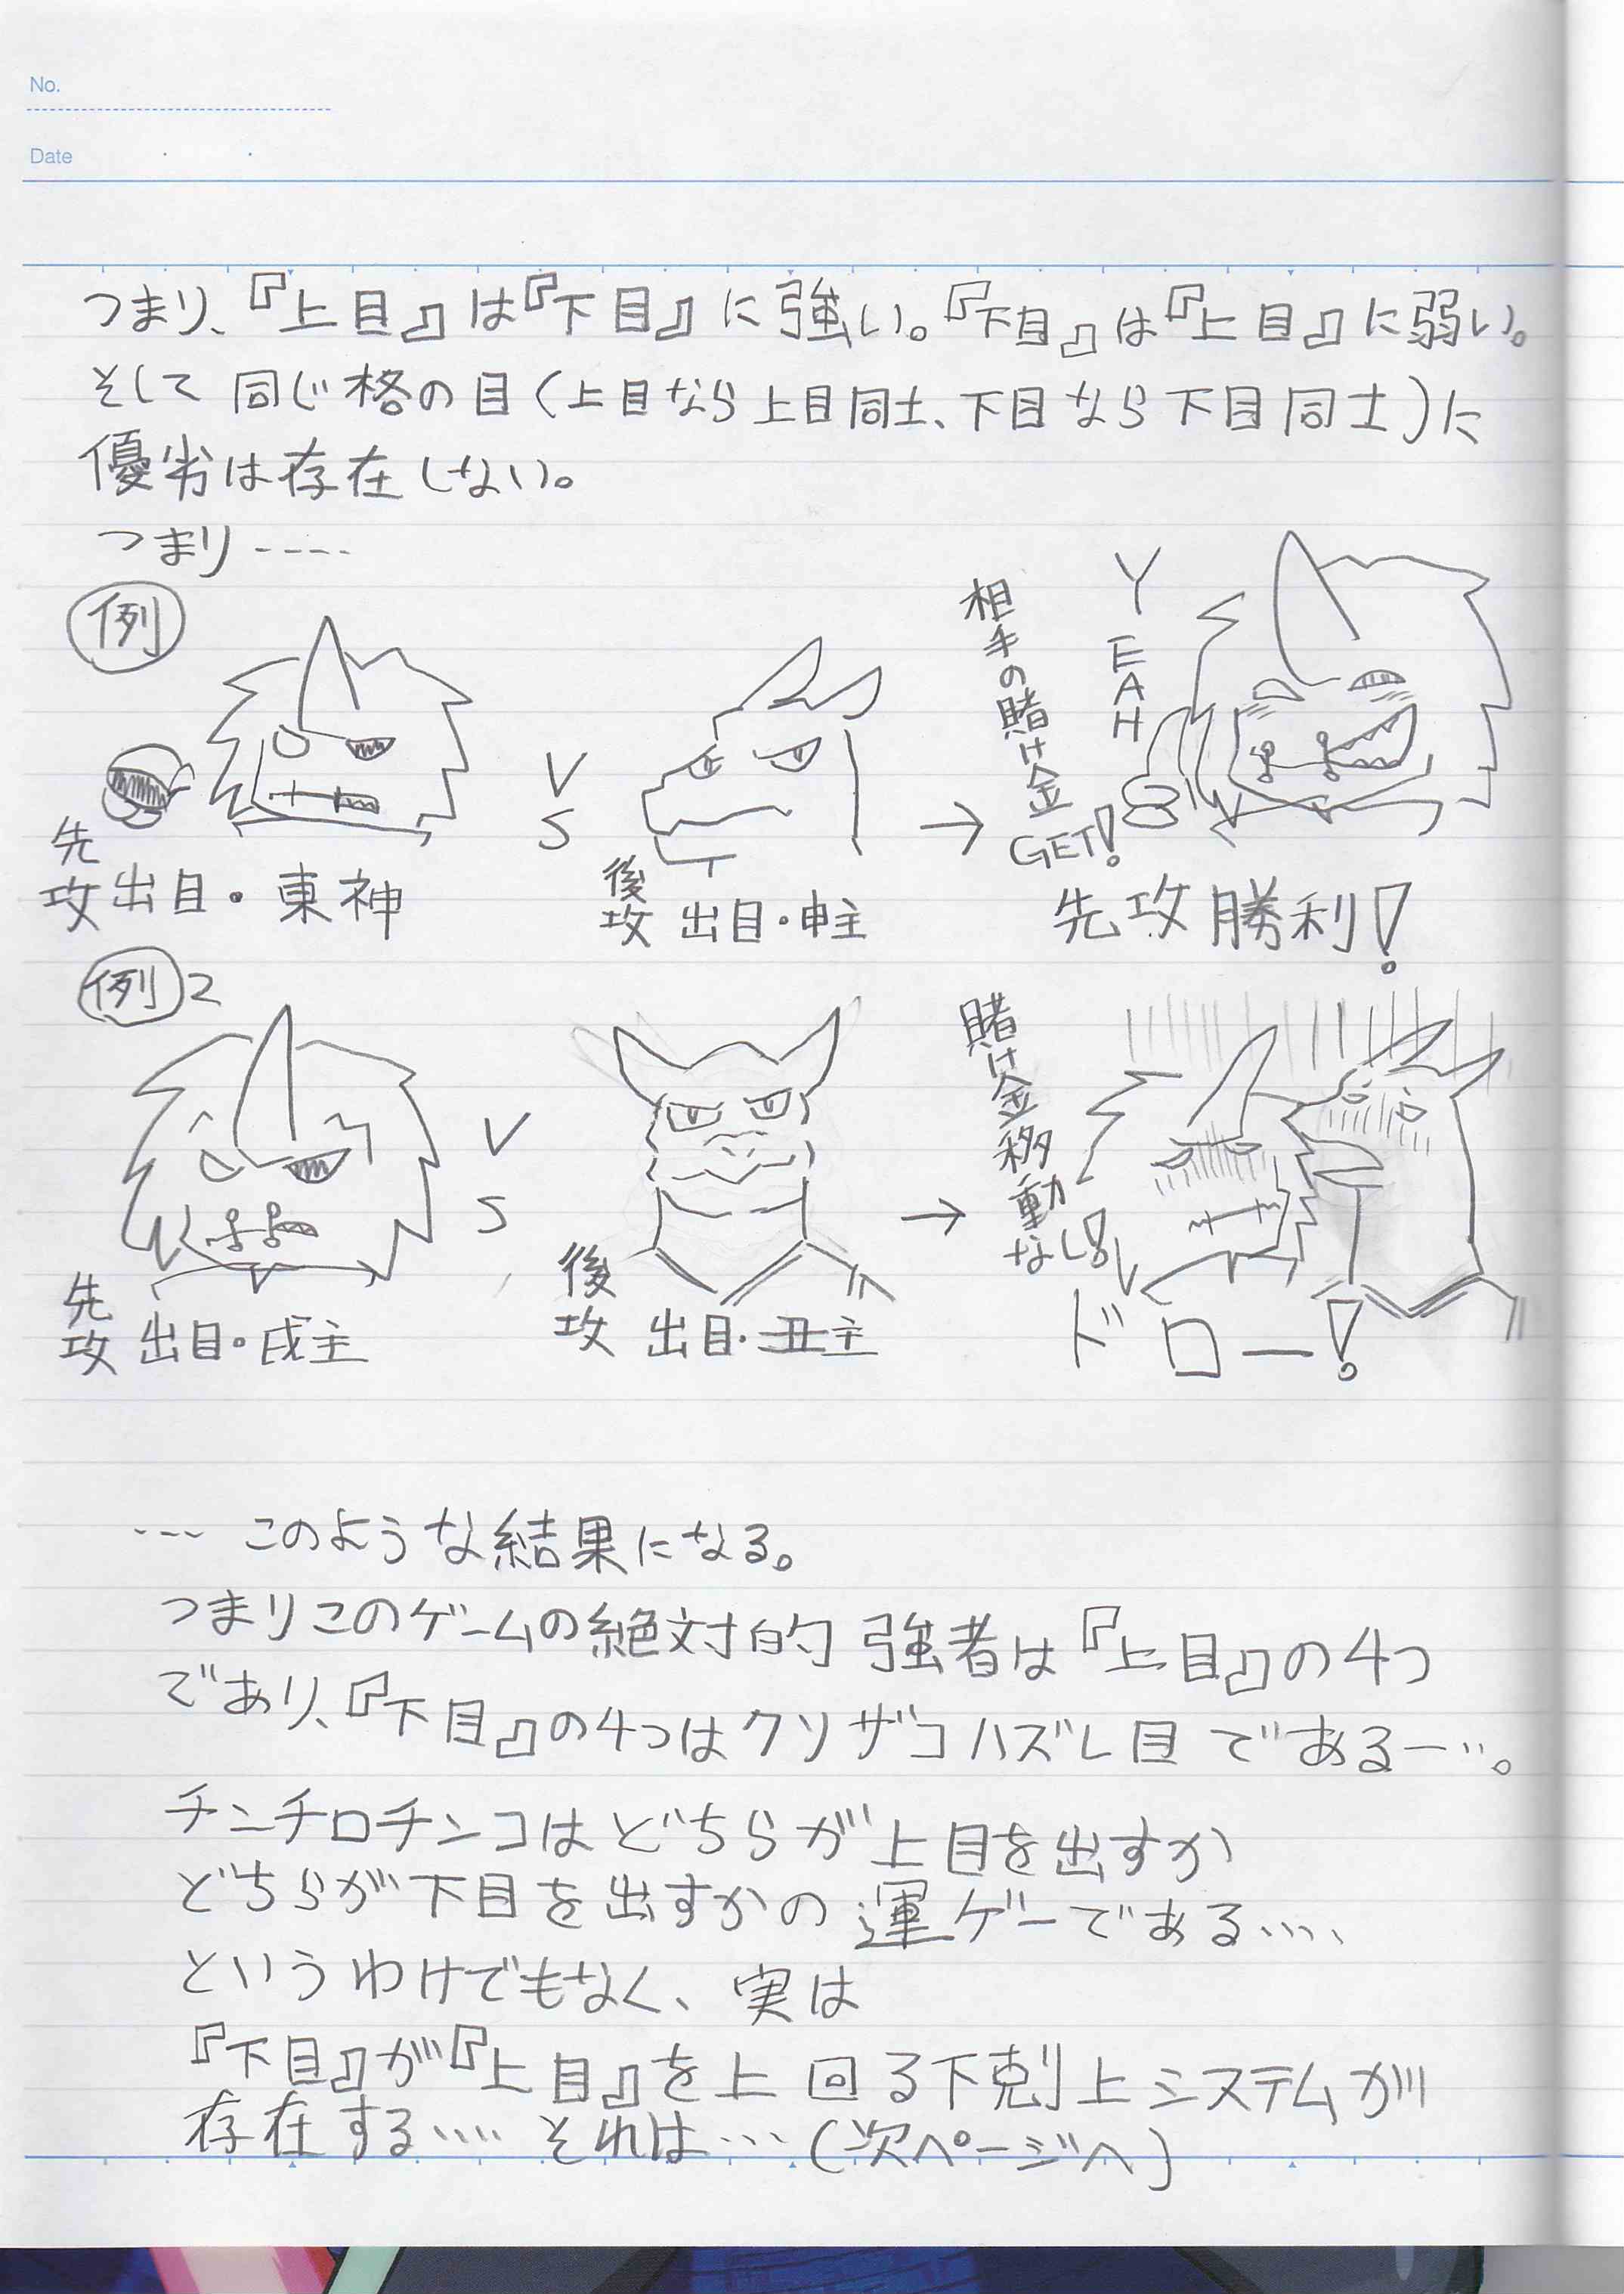 No.
Date
つまり、『上目』は『下目』に強い。『下目』は『上目』に弱い。
そして同じ格の目(上目なら上目同士、下目なら下目同士)に
優劣は存在しない。
つまり----
例
先攻 出目・東神
VS
後攻 出目・申主
→
相手の賭け金GET!
YEAH
先攻勝利!
例2
先攻 出目・戌主
VS
後攻 出目・丑主
→
賭け金移動なし!
ドロー!
--- このような結果になる。
つまりこのゲームの絶対的強者は『上目』の4つ
であり、『下目』の4つはクソザコハズレ目である―…。
チンチロチンコはどちらが上目を出すか
どちらが下目を出すかの運ゲーである‥‥
というわけでもなく、実は
『下目』が『上目』を上回る下剋上システムが
存在する‥‥ それは…(次ページへ)